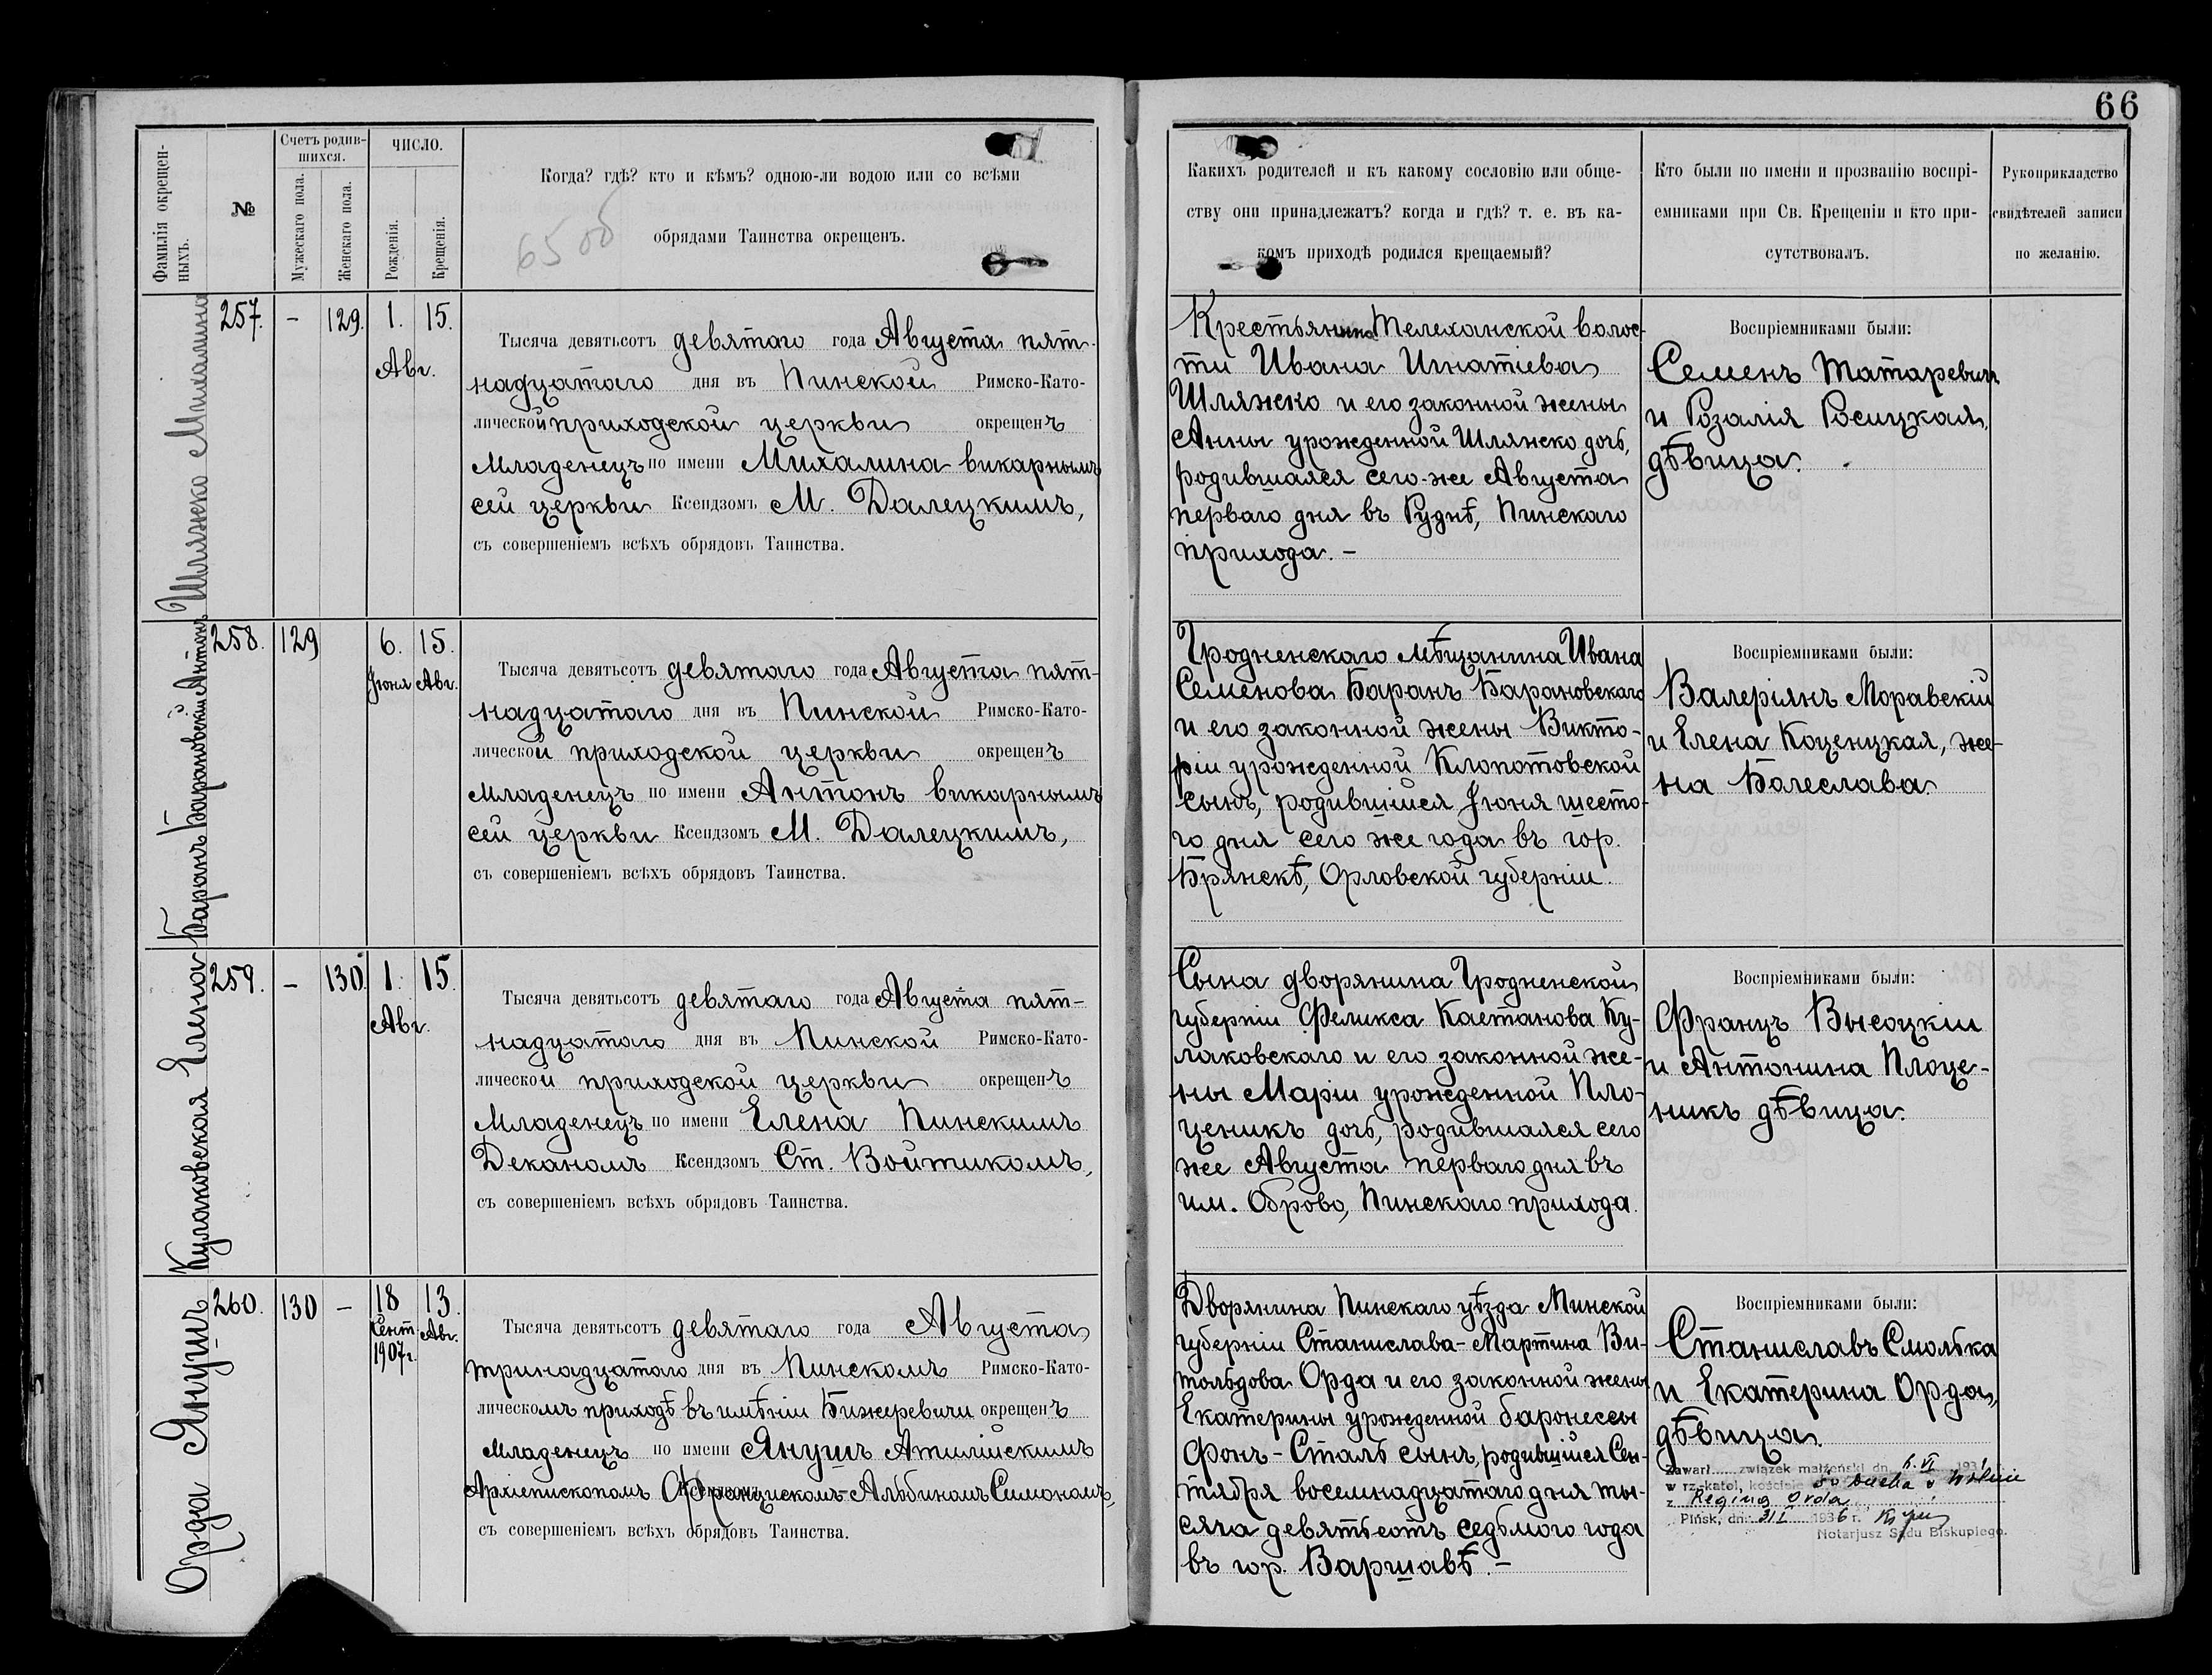 66
Фамилія окрещен-
ныхъ.
№
Счетъ родив-
шихся.
Мужескаго пола.
Женскаго пола.
ЧИСЛО.
Рожденія.
Крещенія.
Когда? гдѣ? кто и кѣмъ? одною-ли водою или со всѣми
обрядами Таинства окрещенъ.
Какихъ родителей и къ какому сословію или обще-
ству они принадлежатъ? когда и гдѣ? т. е. въ ка-
комъ приходѣ родился крещаемый?
Кто были по имени и прозванію воспрі-
емниками при Св. Крещеніи и кто при-
сутствовалъ.
Рукоприкладство
свидѣтелей записи
по желанію.
Шляжко Михалина
257. - 129. 1. 15.
Авг.
Тысяча девятьсотъ девятаго года Августа пят-
надцатаго дня въ Пинской Римско-Като-
лической приходской церкви окрещенъ
Младенецъ по имени Михалина викарнымъ
сей церкви Ксендзомъ М. Далецкимъ,
съ совершеніемъ всѣхъ обрядовъ Таинства.
Крестьянина Телеханской волос-
ти Ивана Игнатіева
Шляжко и его законной жены
Анны урожденной Шляжко дочь,
родившаяся сего-же Августа
перваго дня въ Руднѣ, Пинскаго
прихода. -
Воспріемниками были:
Семенъ Татаревич
и Розалія Росицкая,
дѣвица.
Баранъ Барановскій Антонъ
258. 129 6. 15.
Іюня Авг.
Тысяча девятьсотъ девятаго года Августа пят-
надцатаго дня въ Пинской Римско-Като-
лической приходской церкви окрещенъ
Младенецъ по имени Антонъ викарнымъ
сей церкви Ксендзомъ М. Далецкимъ,
съ совершеніемъ всѣхъ обрядовъ Таинства.
Гродненскаго мѣщанина Ивана
Семенова Баранъ Барановскаго
и его законной жены Викто-
ріи урожденной Клопотовской
сынъ, родившійся Іюня шесто-
го дня сего же года въ гор.
Брянскѣ, Орловской губерніи.
Воспріемниками были:
Валеріянъ Моравскій
и Елена Коценцкая, же-
на Болеслава.
Кулаковская Елена
259. - 130. 1. 15.
Авг.
Тысяча девятьсотъ девятаго года Августа пят-
надцатаго дня въ Пинской Римско-Като-
лической приходской церкви окрещенъ
Младенецъ по имени Елена Пинскимъ
Деканомъ Ксендзомъ Ст. Войтикомъ,
съ совершеніемъ всѣхъ обрядовъ Таинства.
Сына дворянина Гродненской
губерніи Феликса Каетанова Ку-
лаковскаго и его законной же-
ны Маріи урожденной Пло-
ценикъ дочь, родившаяся сего
же Августа перваго дня въ
им. Оброво, Пинскаго прихода.
Воспріемниками были:
Францъ Высоцкій
и Антонина Плоце-
никъ дѣвица.
Орда Янушъ
260. 130 - 18 13.
Сент. Авг.
1907г.
Тысяча девятьсотъ девятаго года Августа
тринадцатаго дня въ Пинскомъ Римско-Като-
лическомъ приходѣ въ имѣніи Бижеревичи окрещенъ
Младенецъ по имени Янушъ Атилійскимъ
Архіепископомъ Францискомъ-Альбиномъ Симономъ,
съ совершеніемъ всѣхъ обрядовъ Таинства.
Дворянина Пинскаго уѣзда Минской
губерніи Станислава-Мартина Ви-
тольдова Орда и его законной жены
Екатерины урожденной баронессы
фонъ-Сталь сынъ, родившійся Сен-
тября восемнадцатаго дня ты-
сяча девятьсотъ седьмого года
въ гор. Варшавѣ. -
Воспріемниками были:
Станиславъ Смолька
и Екатерина Орда,
дѣвица.
Zawarł związek małżeński dn. 6. VI 193
w rz-katol. kościele św Ducha w Wilnie
z Reginą Orda
Pińsk, dn. 31 I 1936 r.
Notarjusz Sądu Biskupiego.